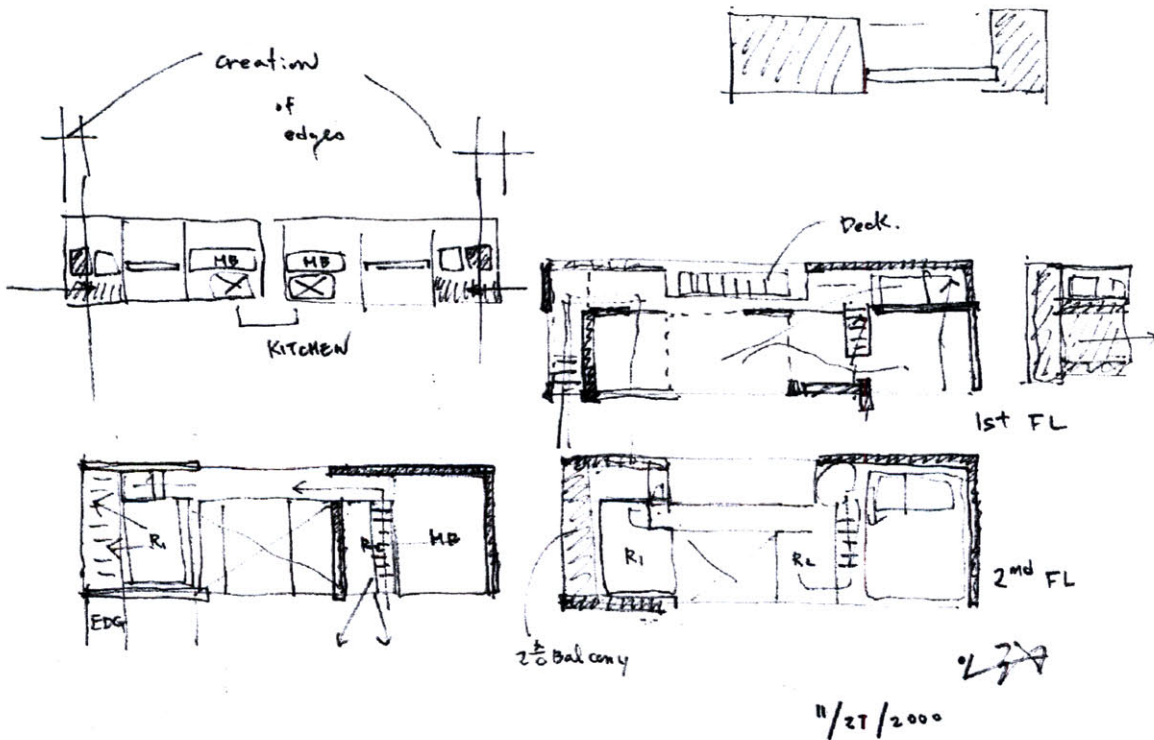 creation
of
edges
MB
MB
KITCHEN
Deck.
1st FL
R1
MB
EDG
R1
R2
2nd FL
Balcony
11/27/2000